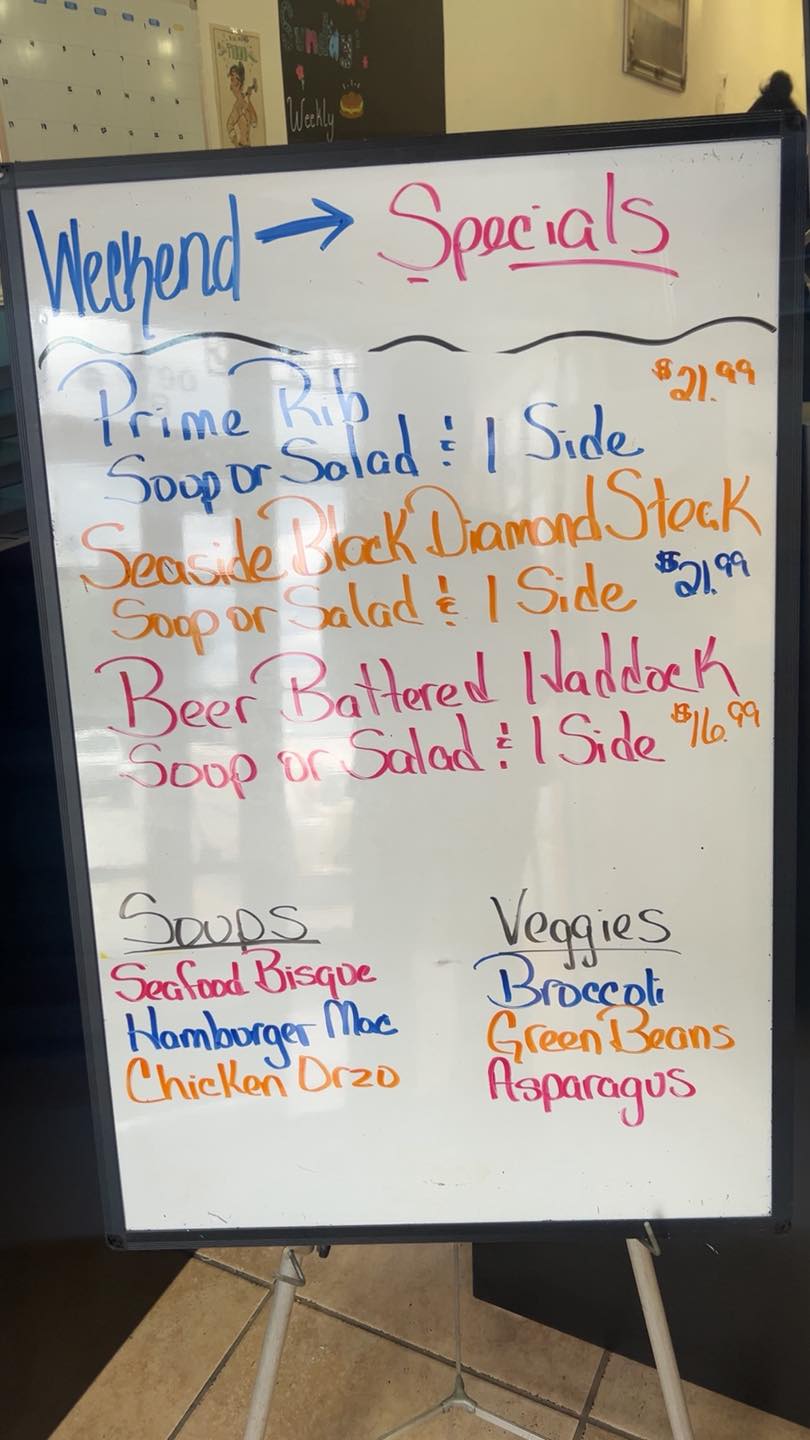 Sunday
Weekly
Weekend → Specials
Prime Rib $21.99
Soup or Salad & 1 Side
Seaside Black Diamond Steak
Soup or Salad & 1 Side $21.99
Beer Battered Haddock
Soup or Salad & 1 Side $16.99
Soups
Seafood Bisque
Hamburger Mac
Chicken Orzo
Veggies
Broccoli
Green Beans
Asparagus